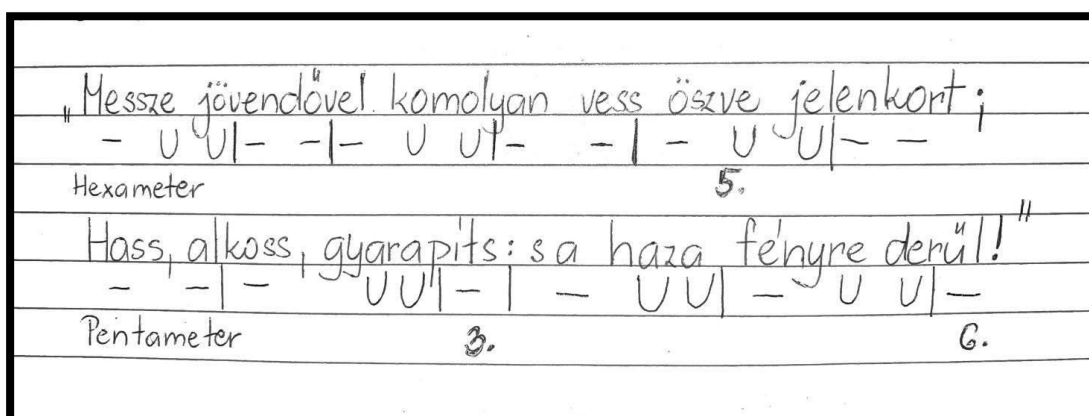 „Messze jövendővel komolyan vess öszve jelenkort;
– U U|– –|– U U|– –| – U U|– –
Hexameter 5.
Hass, alkoss, gyarapíts: s a haza fényre derűl!"
– –|– U U|–| – U U|– U U|–
Pentameter 3. 6.